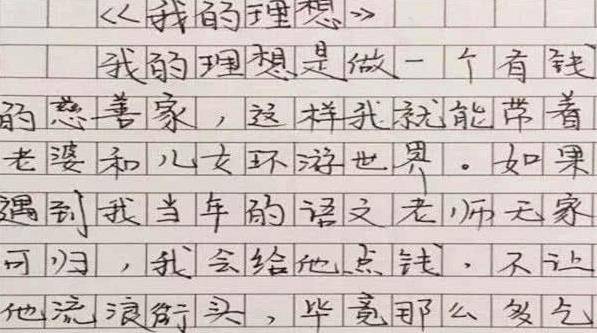 《我的理想》
我的理想是做一个有钱
的慈善家，这样我就能带着
老婆和儿女环游世界。如果
遇到我当年的语文老师无家
可归，我会给他点钱，不让
他流浪街头，毕竟那么多